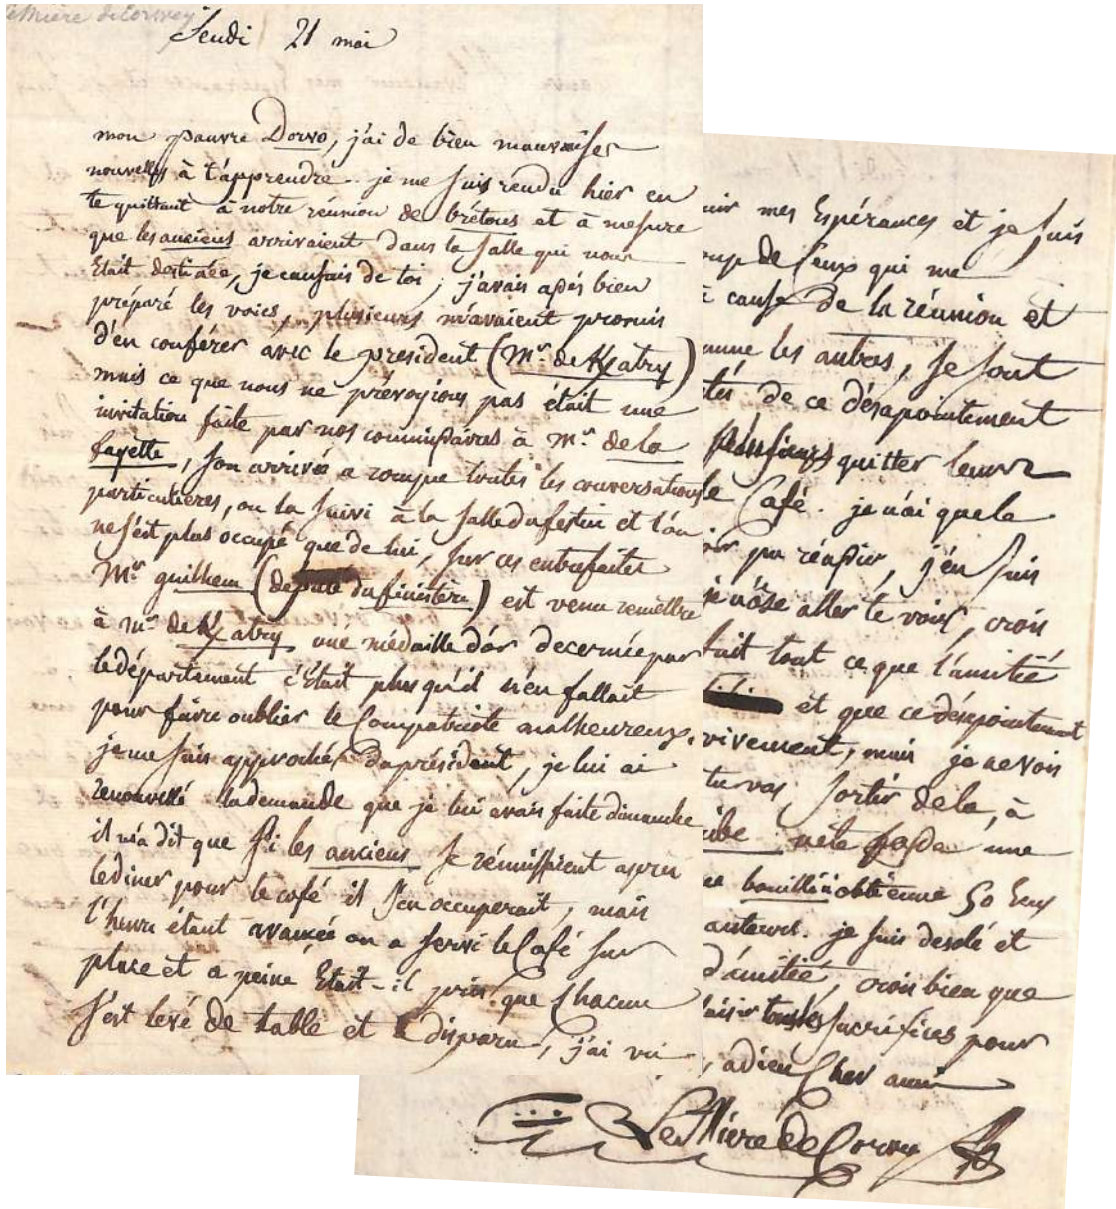 Jeudi 21 mai
mon pauvre Dorvo, j'ai de bien mauvaises
nouvelles à t'apprendre. je me suis rendu hier en
te quittant à notre réunion de brétons et à mesure
que les anciens arrivaient dans la salle qui nous
Etait destinée, je causais de toi, j'avais assés bien
préparé les voies, plusieurs m'avaient promis
d'en conférer avec le président (Mr. de Katry)
mais ce que nous ne prévoyions pas était une
invitation faite par nos commissaires à Mr. de la
fayette, son arrivée a rompu toutes les conversations
particulieres, on la suivi à la salle du festin et l'on
ne s'est plus occupé que de lui, sur ces entrefaites
Mr guilhem (député du finistère) est venu remettre
à Mr de Katry une médaille d'or decernée par
le département c'Etait plus qu'il n'en fallait
pour faire oublier le Compatriote malheureux.
je me suis approché du président, je lui ai
renouvellé la demande que je lui avais faite dimanche
il m'a dit que si les anciens se réunissaient après
le diner pour le café il s'en occuperait, mais
l'heure étant avancée on a servi le Café sur
place et a peine Etait-il pris que chacun
s'est levé de table et a disparu, j'ai vu
mes Espérances et je suis
de ceux qui me
cause de la réunion et
les autres, se sont
de ce désapointement
plusieurs quitter leurs
Café. je n'ai que le
pu réussir, j'en suis
n'ôse aller te voir, crois
fait tout ce que l'amitié
et que ce désapointement
vivement, mais je ne vois
tu vas sortir de la, à
une
bouillé n'obtienne 50 Eux
auteurs. je suis desolé et
d'amitié, crois bien que
tous les sacrifices pour
, adieu Cher ami